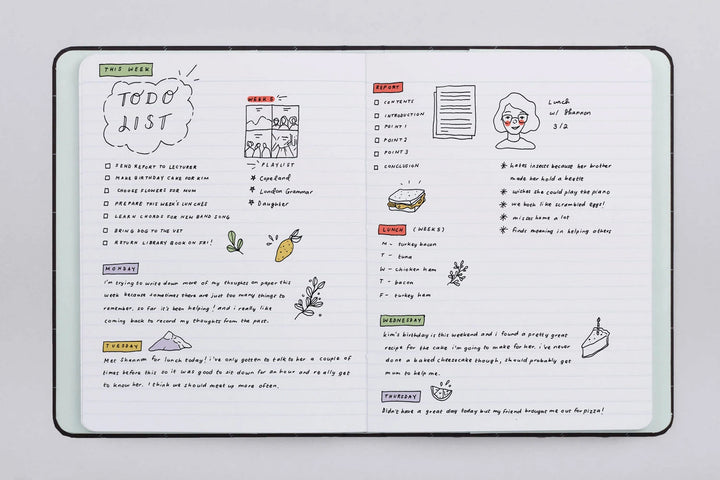 THIS WEEK
TO DO
LIST
SEND REPORT TO LECTURER
MAKE BIRTHDAY CAKE FOR KIM
CHOOSE FLOWERS FOR MUM
PREPARE THIS WEEK'S LUNCHES
LEARN CHORDS FOR NEW BAND SONG
BRING DOG TO THE VET
RETURN LIBRARY BOOK ON FRI!
WEEK 5
PLAYLIST
Copeland
London Grammar
Daughter
MONDAY
i'm trying to write down more of my thoughts on paper this
week because sometimes there are just too many things to
remember, so far it's been helping! and i really like
coming back to record my thoughts from the past.
TUESDAY
Met Shannon for lunch today! i've only gotten to talk to her a couple of
times before this so it was good to sit down for an hour and really get
to know her. I think we should meet up more often.
REPORT
CONTENTS
INTRODUCTION
POINT 1
POINT 2
POINT 3
CONCLUSION
Lunch
w/ Shannon
3/2
hates insects because her brother
made her hold a beetle
wishes she could play the piano
we both like scrambled eggs!
misses home a lot
finds meaning in helping others
LUNCH (WEEK 5)
M - turkey bacon
T - tuna
W - chicken ham
T - bacon
F - turkey ham
WEDNESDAY
Kim's birthday is this weekend and i found a pretty great
recipe for the cake i'm going to make for her. i've never
done a baked cheesecake though, should probably get
mum to help me.
THURSDAY
Didn't have a great day today but my friend brought me out for pizza!